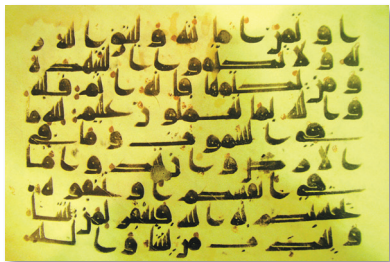 اوتمن امنته وليتق الله ر
به ولا تكتموا الشهدة
ومن يكتمها فانه اثم قلبه
والله بما تعملون عليم لله ما
في السموت وما في
الارض وان تبدوا ما
في انفسكم او تخفوه
يحسبكم به الله فيغفر لمن يشا
ويعذب من يشا والله